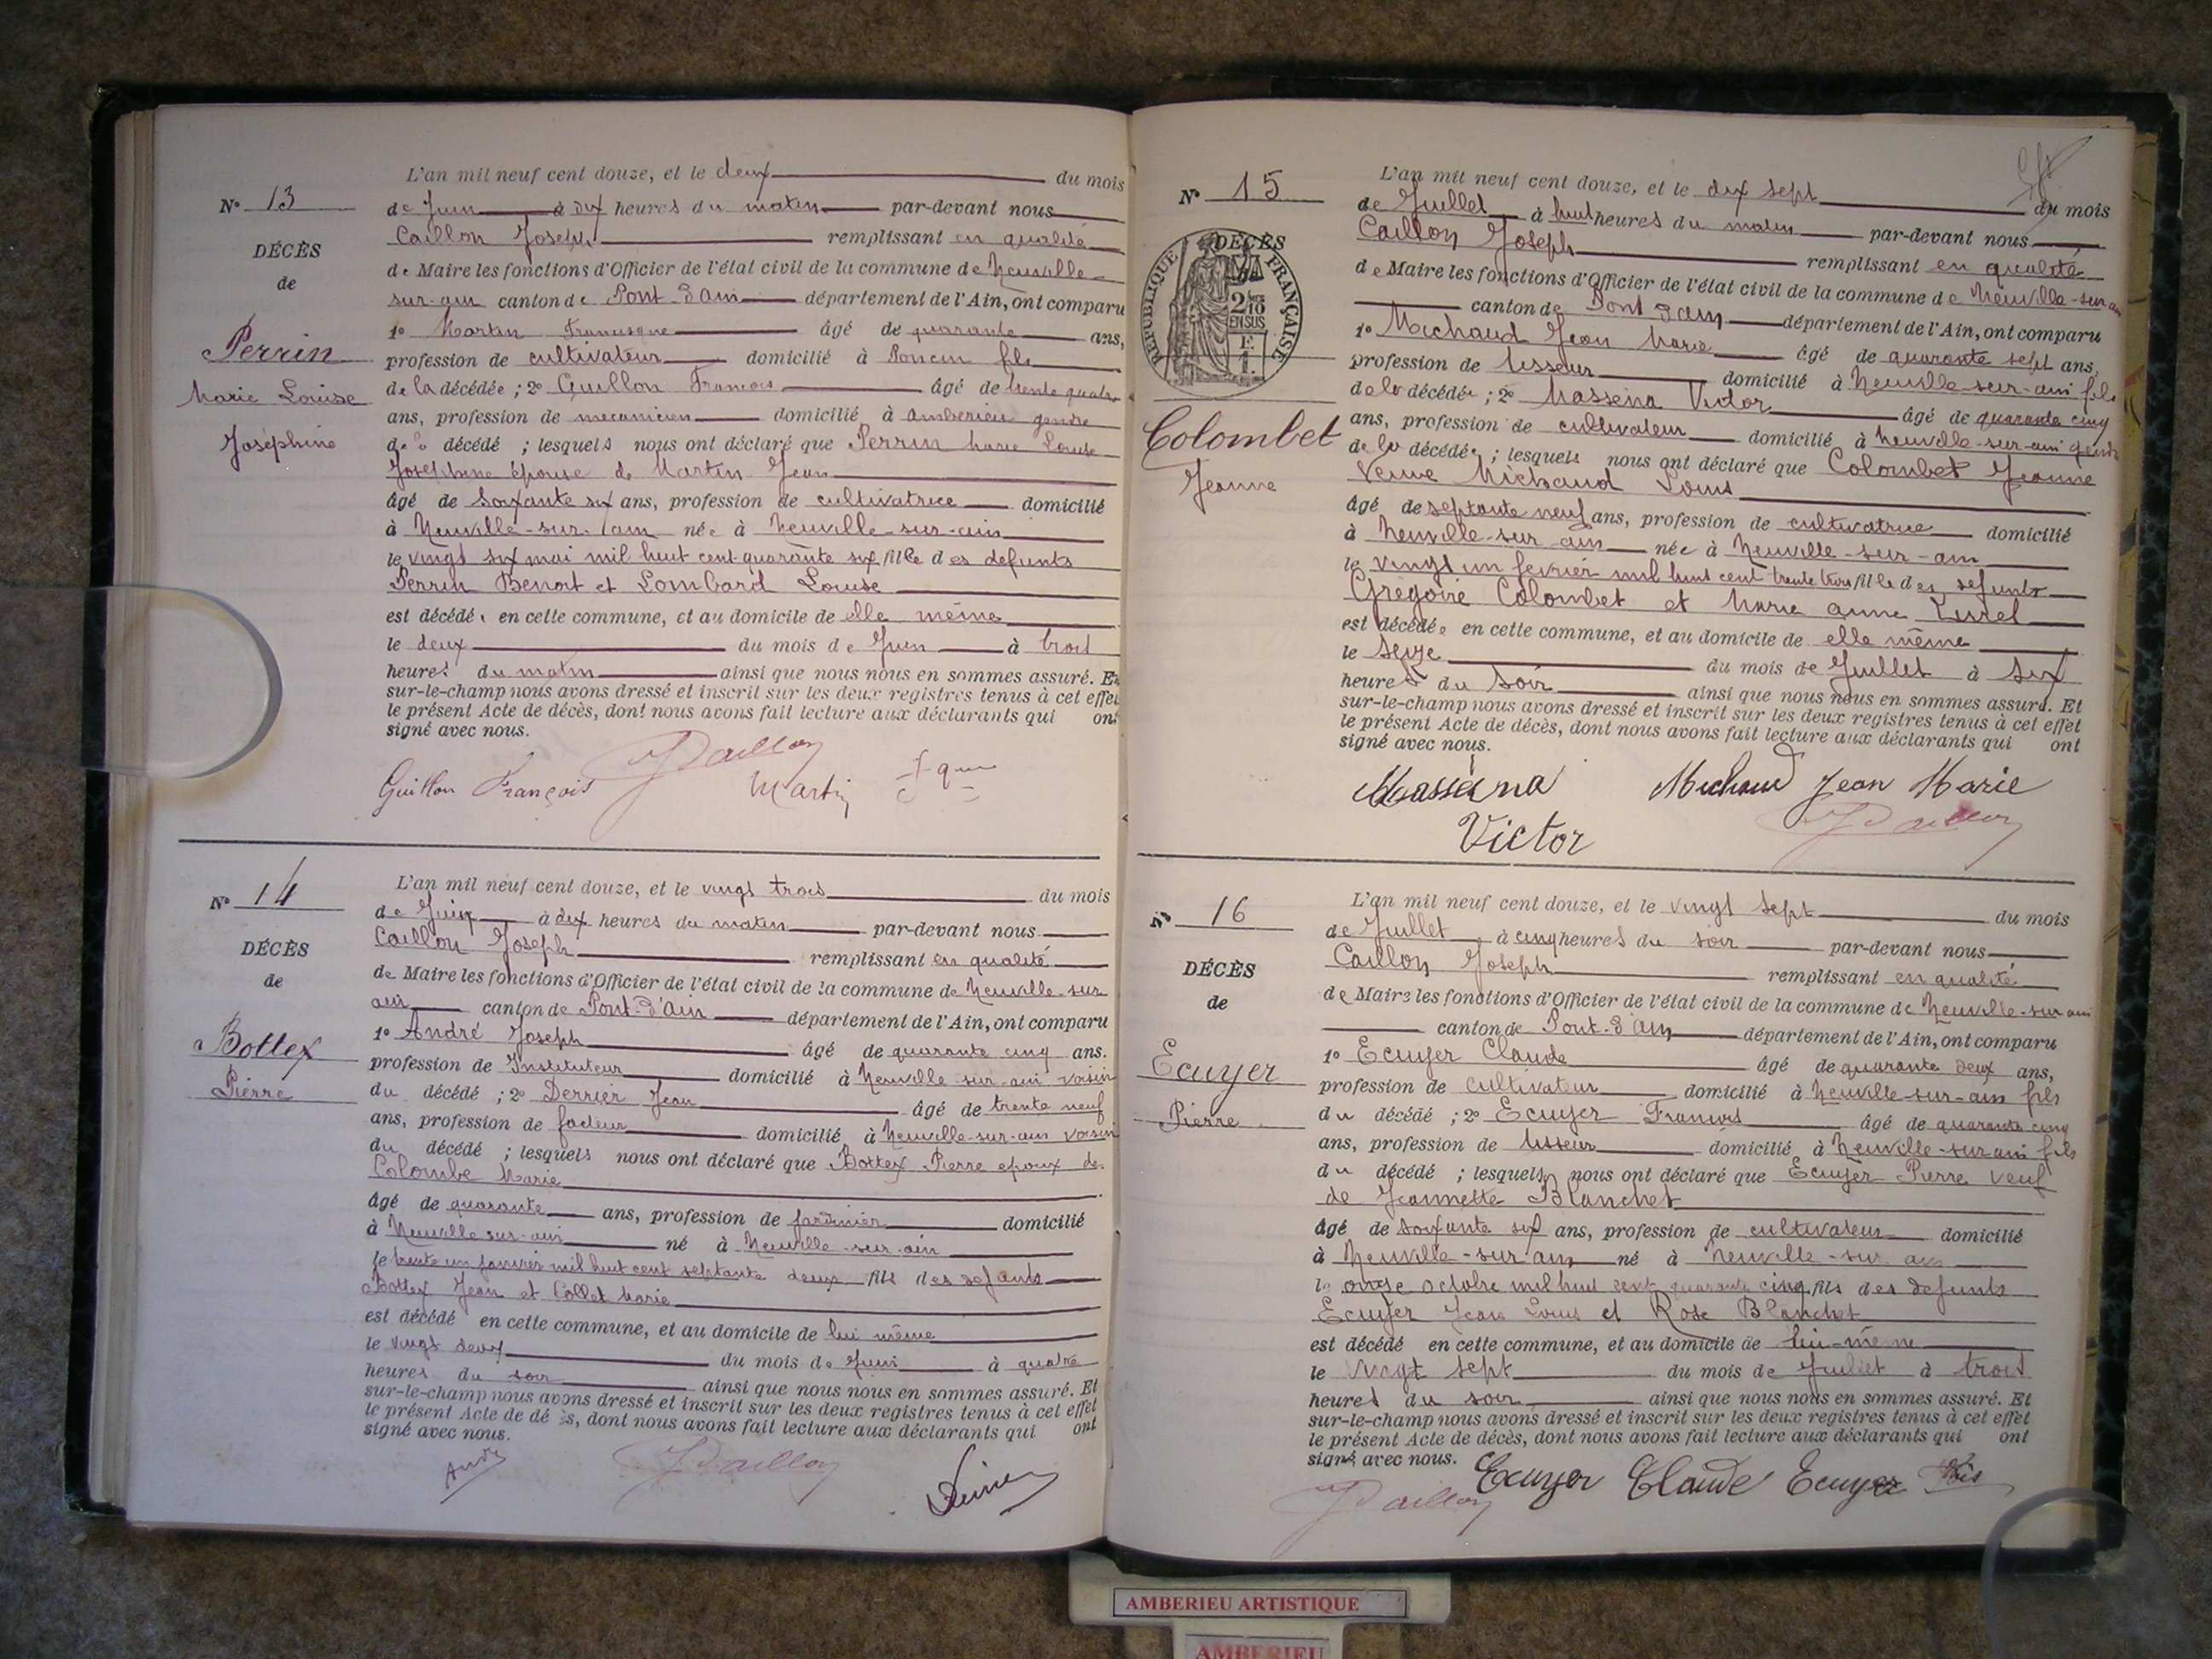 L'an mil neuf cent douze, et le deux du mois
N° 13
de Juin à dix heures du matin par-devant nous
Caillon Joseph remplissant en qualité
DÉCÈS
de Maire les fonctions d'Officier de l'état civil de la commune de Neuville-
de
sur-ain canton de Pont d'ain département de l'Ain, ont comparu
1° Martin Francisque âgé de quarante ans,
Perrin
profession de cultivateur domicilié à Poncin fils
Marie Louise
de la décédée ; 2° Guillon François âgé de trente quatre
ans, profession de mecanicien domicilié à amberieu gendre
Joséphine
de la décédé ; lesquels nous ont déclaré que Perrin Marie Louise
Josephine épouse de Martin Jean
âgé de soixante six ans, profession de cultivatrice domicilié
à Neuville-sur-ain née à Neuville-sur-ain
le vingt six mai mil huit cent quarante six fille des defunts
Perrin Benoit et Lombard Louise
est décédé en cette commune, et au domicile de elle même
le deux du mois de Juin à trois
heures du matin ainsi que nous nous en sommes assuré. Et
sur-le-champ nous avons dressé et inscrit sur les deux registres tenus à cet effet
le présent Acte de décès, dont nous avons fait lecture aux déclarants qui ont
signé avec nous.
Guillon François JCaillon Martin fque
L'an mil neuf cent douze, et le vingt trois du mois
N° 14
de Juin à dix heures du matin par-devant nous
Caillon Joseph remplissant en qualité
DÉCÈS
de Maire les fonctions d'Officier de l'état civil de la commune de Neuville-sur
de
ain canton de Pont-d'Ain département de l'Ain, ont comparu
1° André Joseph âgé de quarante cinq ans.
Bottex
profession de Instituteur domicilié à Neuville sur-ain voisin
Pierre
du décédé ; 2° Derrier Jean âgé de trente neuf
ans, profession de facteur domicilié à Neuville-sur-ain voisin
du décédé ; lesquels nous ont déclaré que Bottex Pierre epoux de
Colombe Marie
âgé de quarante ans, profession de jardinier domicilié
à Neuville sur-ain né à Neuville-sur-ain
le trente un janvier mil huit cent septante deux fils des defunts
Bottex Jean et Collet Marie
est décédé en cette commune, et au domicile de lui même
le vingt deux du mois de Juin à quatre
heures du soir ainsi que nous nous en sommes assuré. Et
sur-le-champ nous avons dressé et inscrit sur les deux registres tenus à cet effet
le présent Acte de décès, dont nous avons fait lecture aux déclarants qui ont
signé avec nous.
André JCaillon
L'an mil neuf cent douze, et le dix sept du mois
N° 15
de Juillet à huit heures du matin par-devant nous
Caillon Joseph remplissant en qualité
DÉCÈS
RÉPUBLIQUE FRANÇAISE
2/10 EN SUS
de Maire les fonctions d'Officier de l'état civil de la commune de Neuville-sur-ain
canton de Pont d'ain département de l'Ain, ont comparu
1° Michaud Jean Marie âgé de quarante sept ans,
profession de tisseur domicilié à Neuville-sur-ain fils
de la décédée ; 2° Masséna Victor âgé de quarante cinq
Colombet
ans, profession de cultivateur domicilié à Neuville-sur-ain gendre
Jeanne
de la décédée ; lesquels nous ont déclaré que Colombet Jeanne
Veuve Michaud Louis
âgé de septante neuf ans, profession de cultivatrice domicilié
à Neuville-sur-ain née à Neuville-sur-ain
le vingt un fevrier mil huit cent trente trois fille des defunts
Grégoire Colombet et Marie anne
est décédée en cette commune, et au domicile de elle même
le seize du mois de Juillet à six
heures du soir ainsi que nous nous en sommes assuré. Et
sur-le-champ nous avons dressé et inscrit sur les deux registres tenus à cet effet
le présent Acte de décès, dont nous avons fait lecture aux déclarants qui ont
signé avec nous.
Masséna Michaud Jean Marie
Victor JCaillon
L'an mil neuf cent douze, et le vingt sept du mois
N° 16
de Juillet à cinq heures du soir par-devant nous
Caillon Joseph remplissant en qualité
DÉCÈS
de Maire les fonctions d'Officier de l'état civil de la commune de Neuville-sur ain
de
canton de Pont-d'ain département de l'Ain, ont comparu
1° Ecuyer Claude âgé de quarante deux ans,
Ecuyer
profession de cultivateur domicilié à Neuville-sur-ain fils
Pierre
du décédé ; 2° Ecuyer François âgé de quarante cinq
ans, profession de tisseur domicilié à Neuville-sur ain fils
du décédé ; lesquels nous ont déclaré que Ecuyer Pierre veuf
de Jeannette Blanchet
âgé de soixante six ans, profession de cultivateur domicilié
à Neuville-sur ain né à Neuville-sur ain
le onze octobre mil huit cent quarante cinq fils des defunts
Ecuyer Jean Louis et Rose Blanchet
est décédé en cette commune, et au domicile de lui-même
le vingt sept du mois de Juillet à trois
heures du soir ainsi que nous nous en sommes assuré. Et
sur-le-champ nous avons dressé et inscrit sur les deux registres tenus à cet effet
le présent Acte de décès, dont nous avons fait lecture aux déclarants qui ont
signé avec nous.
JCaillon Ecuyer Claude Ecuyer
AMBERIEU ARTISTIQUE
AMBERIEU